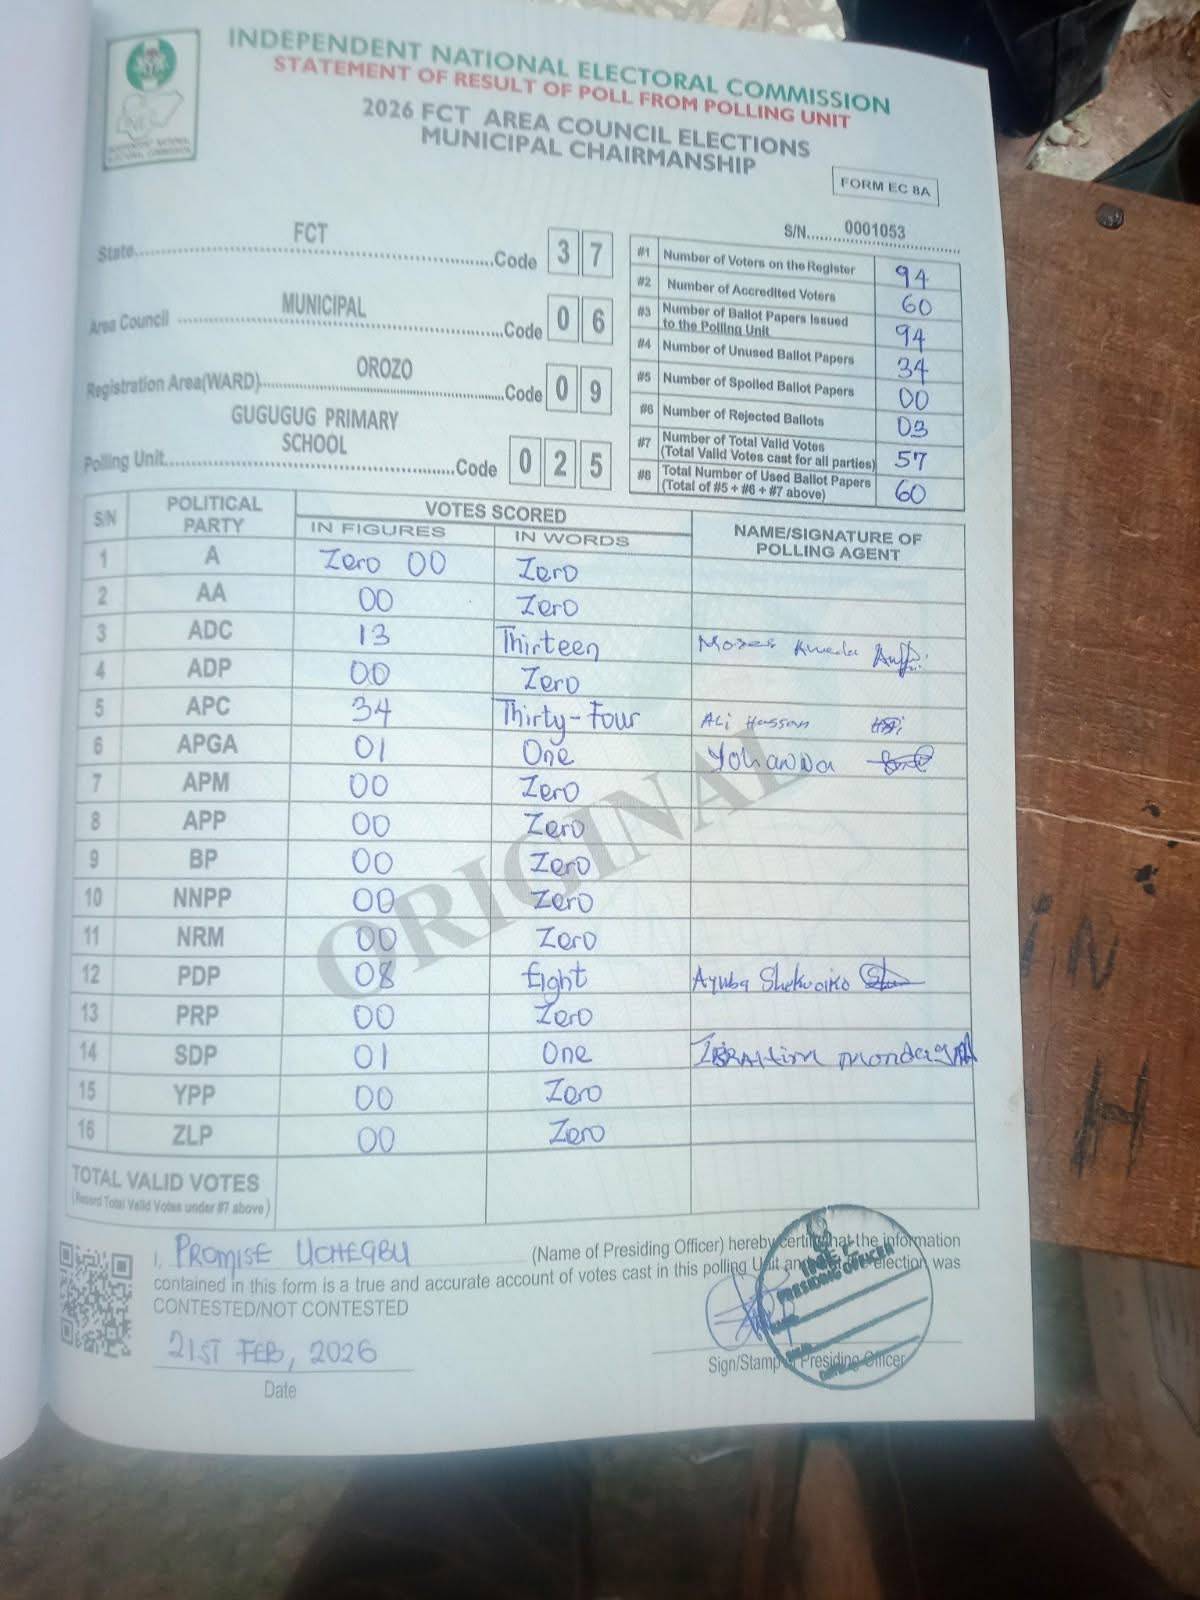 INDEPENDENT NATIONAL ELECTORAL COMMISSION
STATEMENT OF RESULT OF POLL FROM POLLING UNIT
2026 FCT AREA COUNCIL ELECTIONS
MUNICIPAL CHAIRMANSHIP
FORM EC 8A
S/N...... 0001053
State FCT Code 3 7
Area Council MUNICIPAL Code 0 6
Registration Area(WARD) OROZO Code 0 9
GUGUGUG PRIMARY
SCHOOL
Polling Unit Code 0 2 5
#1 Number of Voters on the Register 94
#2 Number of Accredited Voters 60
#3 Number of Ballot Papers Issued to the Polling Unit 94
#4 Number of Unused Ballot Papers 34
#5 Number of Spoiled Ballot Papers 00
#6 Number of Rejected Ballots 03
#7 Number of Total Valid Votes (Total Valid Votes cast for all parties) 57
#8 Total Number of Used Ballot Papers (Total of #5 + #6 + #7 above) 60
S/N POLITICAL PARTY VOTES SCORED NAME/SIGNATURE OF POLLING AGENT
IN FIGURES IN WORDS
1 A Zero 00 Zero
2 AA 00 Zero
3 ADC 13 Thirteen Moses
4 ADP 00 Zero
5 APC 34 Thirty-Four Ali Hassan
6 APGA 01 One Yohanna
7 APM 00 Zero
8 APP 00 Zero
9 BP 00 Zero
10 NNPP 00 Zero
11 NRM 00 Zero
12 PDP 08 Eight Ayuba
13 PRP 00 Zero
14 SDP 01 One IBRAHim monday
15 YPP 00 Zero
16 ZLP 00 Zero
ORIGINAL
TOTAL VALID VOTES
(Record Total Valid Votes under #7 above)
I, PROMISE UCHEGBU (Name of Presiding Officer) hereby certify that the information
contained in this form is a true and accurate account of votes cast in this polling Unit and election was
CONTESTED/NOT CONTESTED
21ST FEB, 2026
Date
Sign/Stamp Presiding Officer
INEC
PRESIDING OFFICER